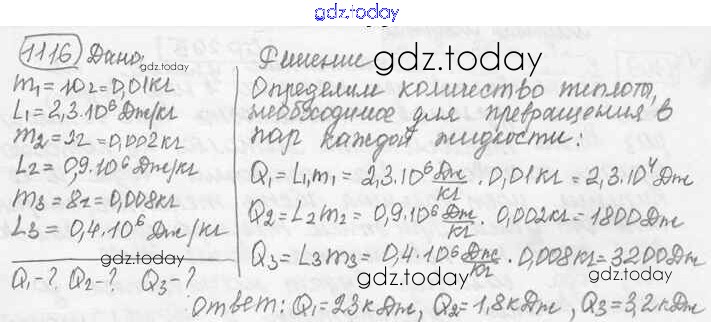 gdz.today
1116 Дано: Решение
gdz.today
m₁=10г=0,01кг
L₁=2,3·10⁶Дж/кг
m₂=2г=0,002кг
L₂=0,9·10⁶Дж/кг
m₃=8г=0,008кг
L₃=0,4·10⁶Дж/кг
Q₁-? Q₂-? Q₃-?
Определим количество теплоты,
необходимое для превращения в
gdz.today
пар каждой жидкости:
Q₁=L₁m₁=2,3·10⁶Дж/кг·0,01кг=2,3·10⁴Дж
gdz.today
Q₂=L₂m₂=0,9·10⁶Дж/кг·0,002кг=1800Дж
Q₃=L₃m₃=0,4·10⁶Дж/кг·0,008кг=3200Дж
gdz.today
gdz.today
Ответ: Q₁=23кДж, Q₂=1,8кДж, Q₃=3,2кДж
gdz.today